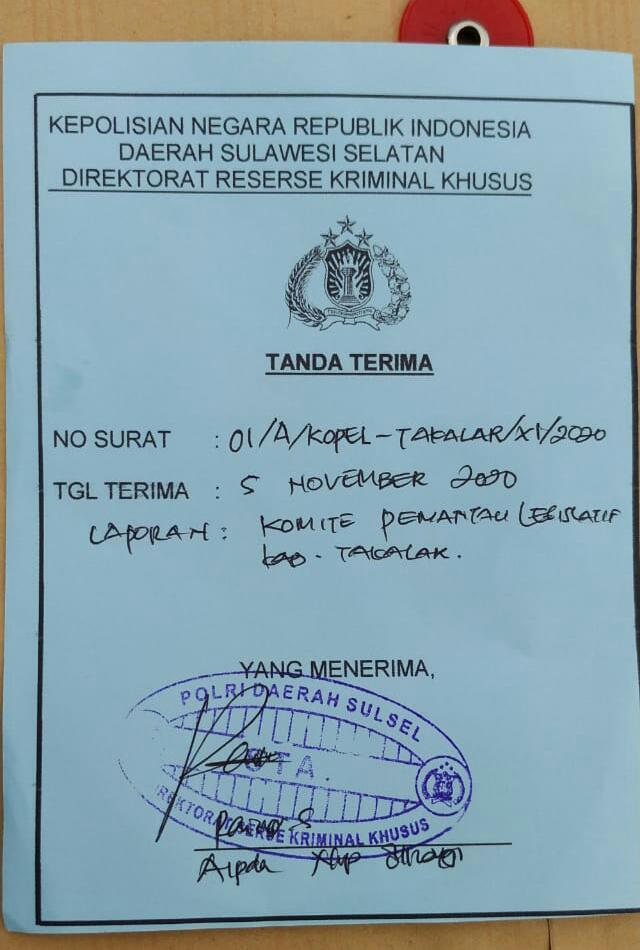 KEPOLISIAN NEGARA REPUBLIK INDONESIA
DAERAH SULAWESI SELATAN
DIREKTORAT RESERSE KRIMINAL KHUSUS
TANDA TERIMA
NO SURAT : 01/A/KOPEL-TAKALAR/XI/2020
TGL TERIMA : 5 NOVEMBER 2020
LAPORAN : KOMITE PEMANTAU LEGISLATIF
KAB. TAKALAR.
YANG MENERIMA,
POLRI DAERAH SULSEL
TA.
DIREKTORAT RESERSE KRIMINAL KHUSUS
Aipda